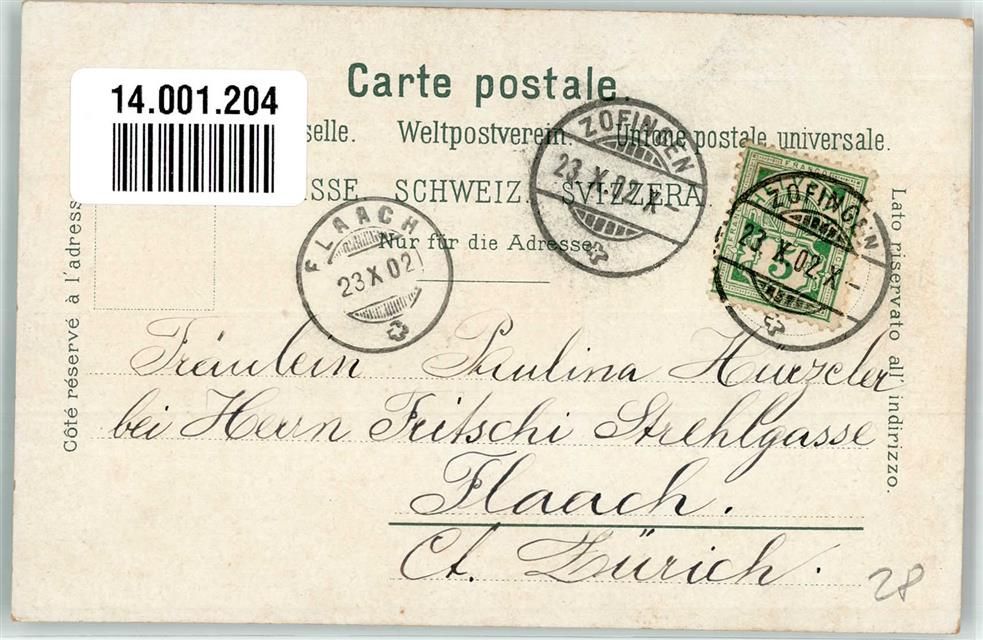 14.001.204
Carte postale.
selle. Weltpostverein. Unione postale universale.
SSE. SCHWEIZ. SVIZZERA
Nur für die Adresse.
Côté réservé à l'adresse
Lato riservato all'indirizzo.
ZOFINGEN
23.X.02.X-
ZOFINGEN
23.X.02.X-
FRANCO
5
FLAACH
23 X 02
Fräulein Paulina Huezeler
bei Herrn Fritschi Strehlgasse
Flaach.
Ct. Zürich.
28